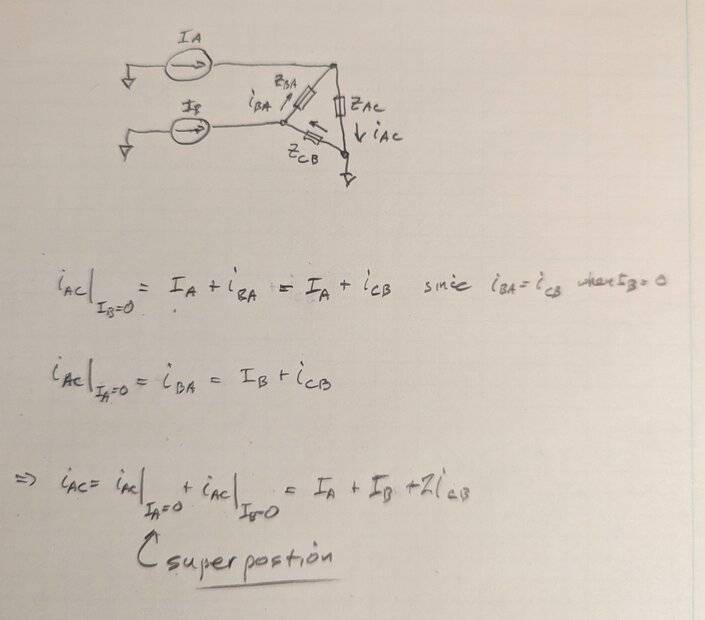 I_A
Z_BA
i_BA
I_B
Z_AC
i_AC
Z_CB
i_AC|_{I_B=0} = I_A + i_BA = I_A + i_CB since i_BA = i_CB when I_B = 0
i_AC|_{I_A=0} = i_BA = I_B + i_CB
⇒ i_AC = i_AC|_{I_A=0} + i_AC|_{I_B=0} = I_A + I_B + 2i_CB
superpostion